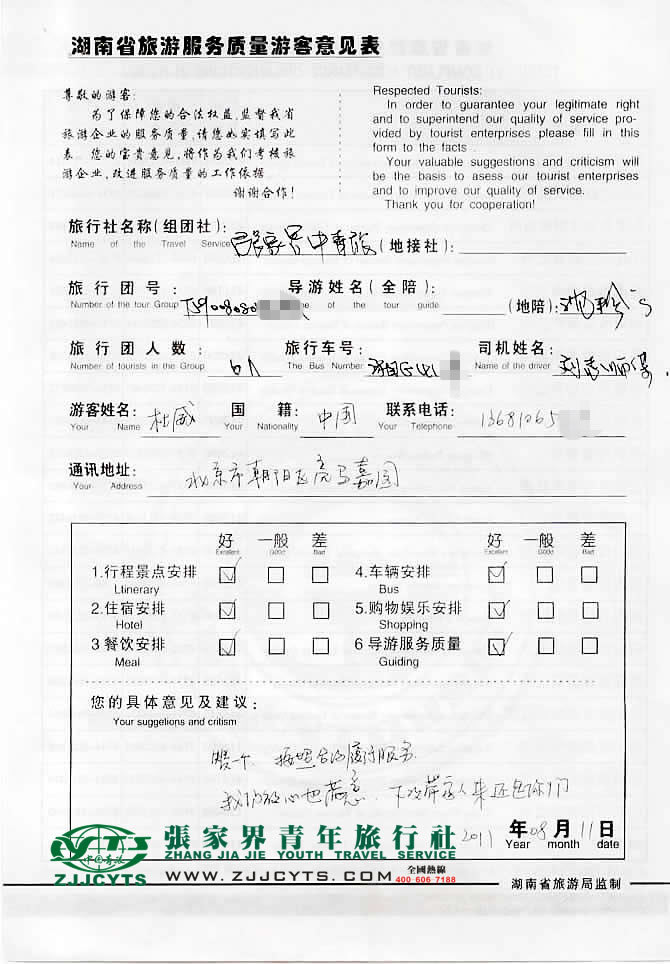 湖南省旅游服务质量游客意见表
尊敬的游客:
为了保障您的合法权益,监督我省
旅游企业的服务质量,请您如实填写此
表。您的宝贵意见,将作为我们考核旅
游企业,改进服务质量的工作依据。
谢谢合作!
Respected Tourists:
In order to guarantee your legitimate right
and to superintend our quality of service pro-
vided by tourist enterprises please fill in this
form to the facts .
Your valuable suggestions and criticism will
be the basis to asess our tourist enterprises
and to improve our quality of service.
Thank you for cooperation!
旅行社名称(组团社): 张家界中青旅 (地接社):
Name of the Travel Service
旅行团号: 导游姓名(全陪): (地陪):
Number of the tour Group e of the tour guide
旅行团人数: 6人 旅行车号: 司机姓名:
Number of tourists in the Group The Bus Number Name of the driver
游客姓名: 杜威 国籍: 中国 联系电话: 13681065
Your Name Your Nationality Your Telephone
通讯地址: 北京市朝阳区亮马嘉园
Your Address
好 一般 差 好 一般 差
Excellent Good Bad Excellent Good Bad
1.行程景点安排 4.车辆安排
Ltinerary Bus
2.住宿安排 5.购物娱乐安排
Hotel Shopping
3 餐饮安排 6 导游服务质量
Meal Guiding
您的具体意见及建议:
Your suggetions and critism
按照合同履行服务
我们放心也满意。下次带家人来还包你们
2011 年 08 月 11 日
Year month date
CYTS
中国青旅
ZJJCYTS
張家界青年旅行社
ZHANG JIA JIE YOUTH TRAVEL SERVICE
WWW.ZJJCYTS.COM
全國熱線
400 606 7188
湖南省旅游局监制